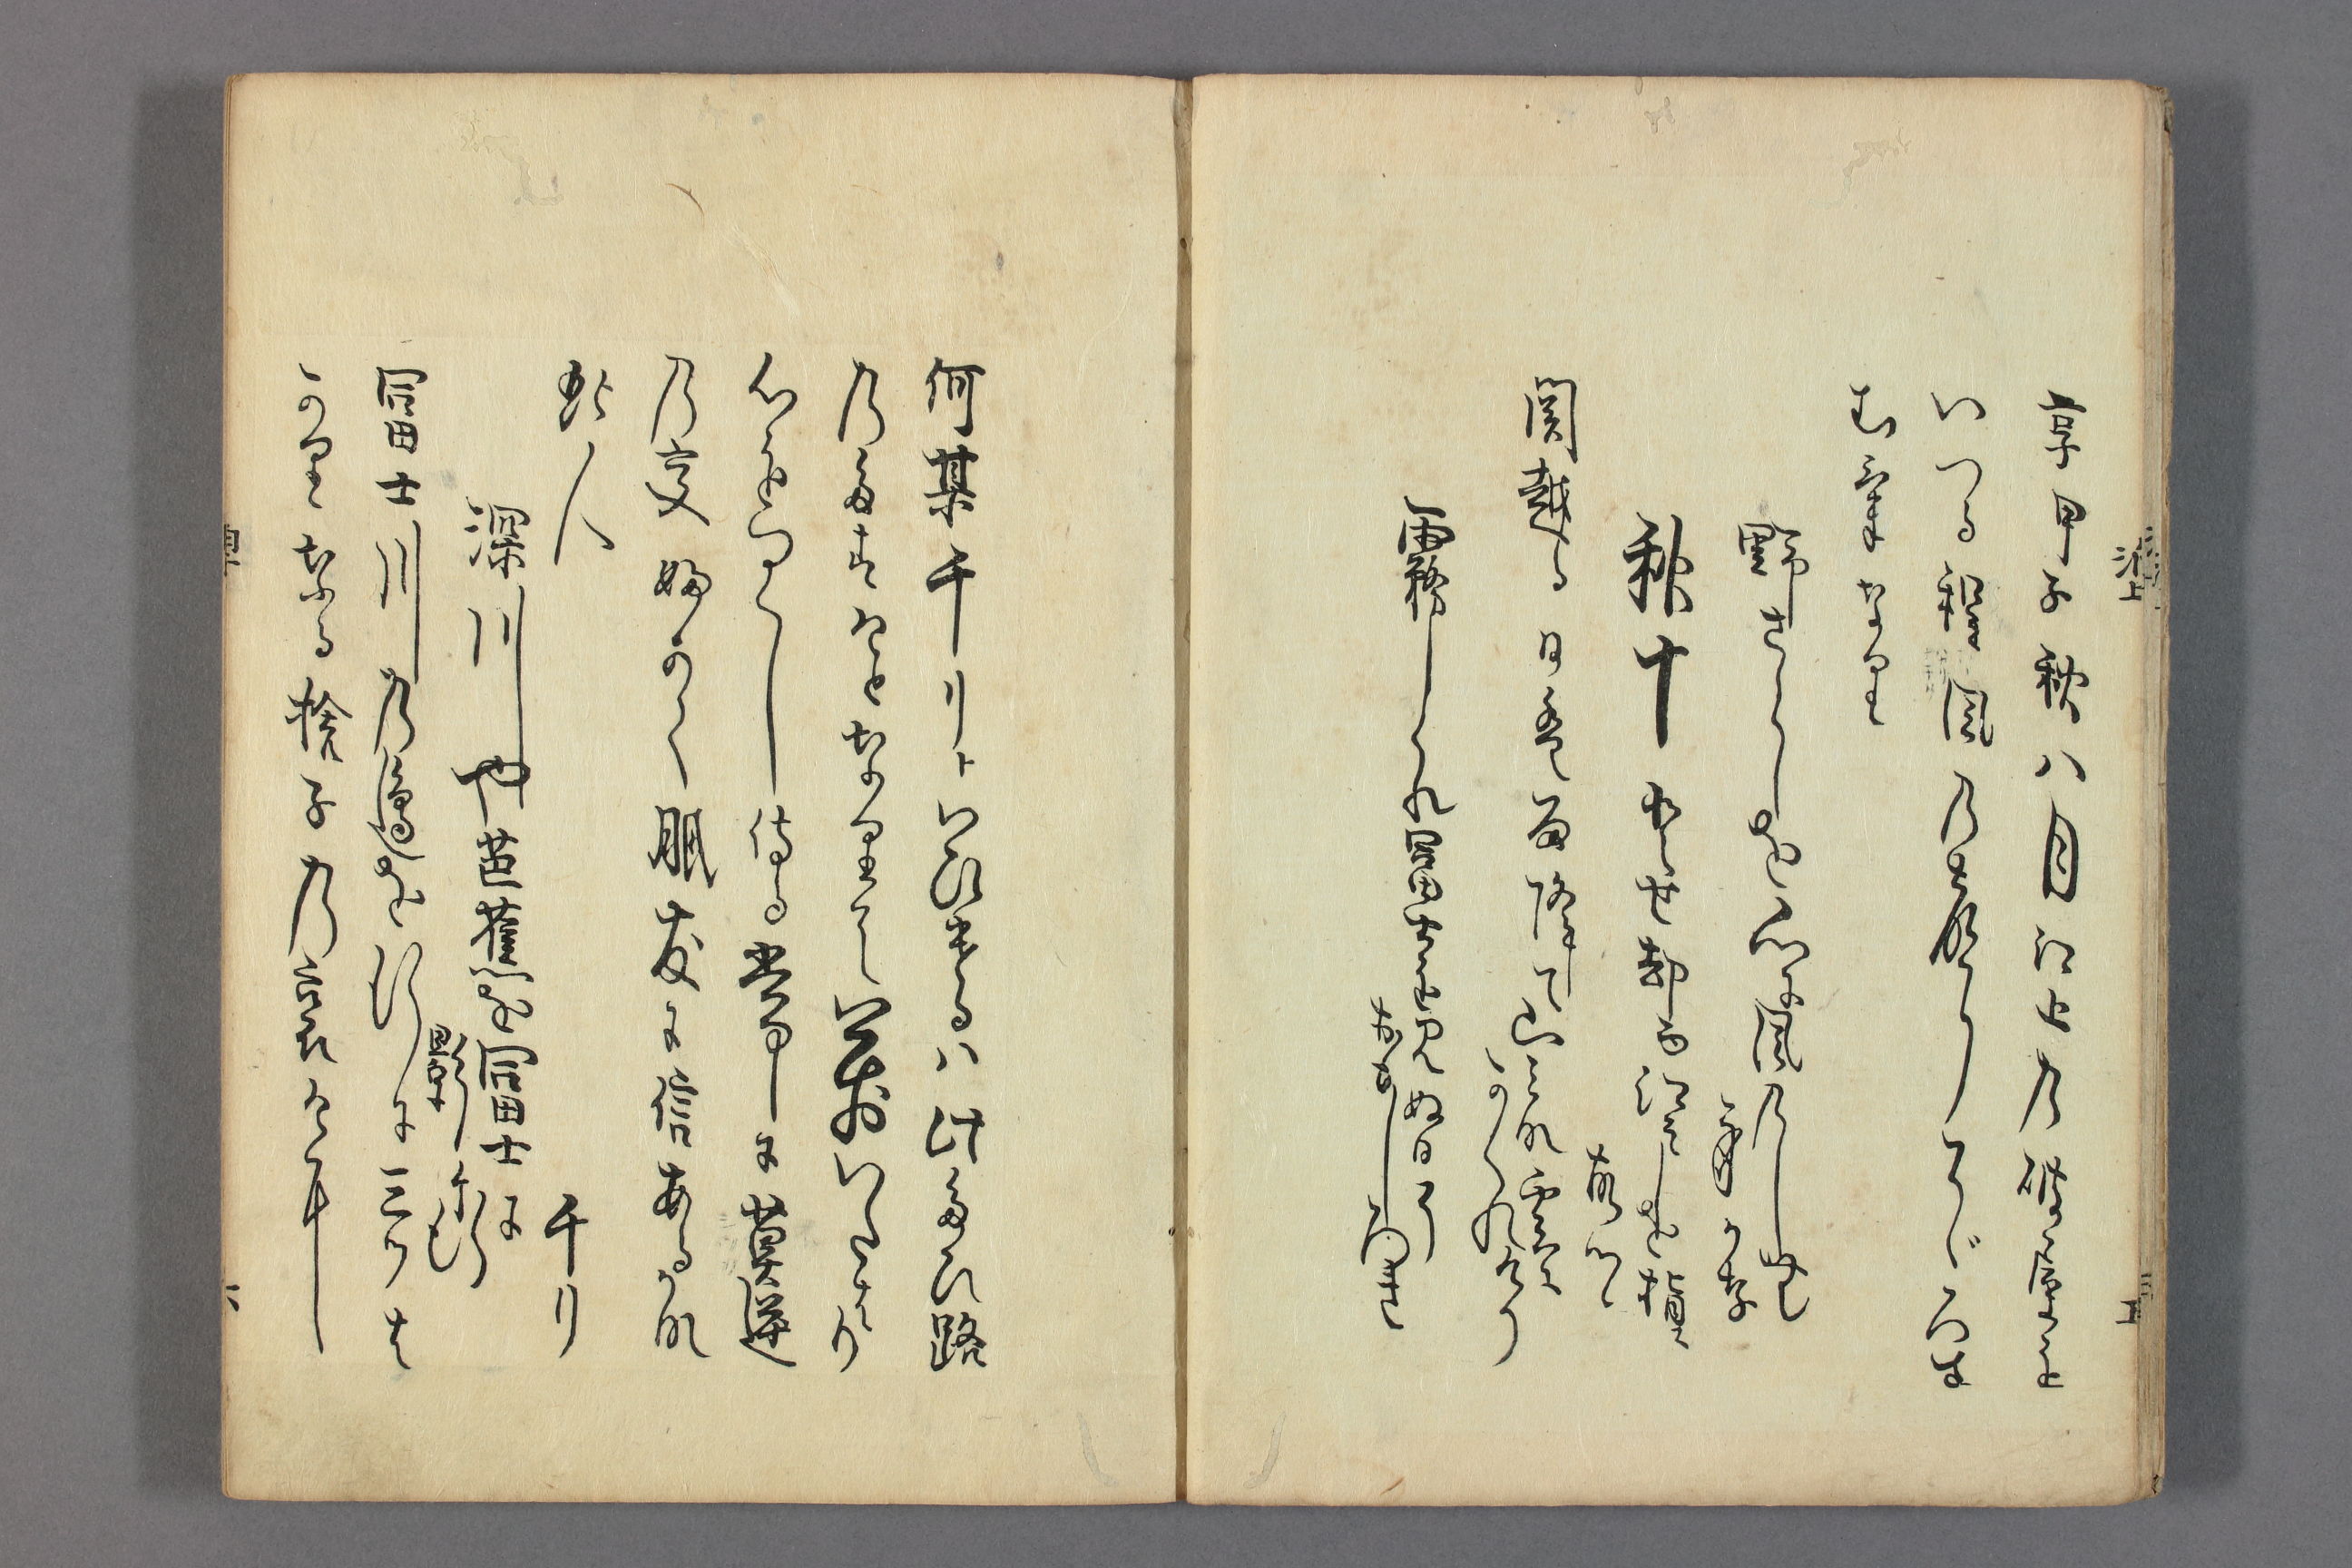 享甲子秋八月江上乃破屋を
いつる程風乃聲そゞろさ
む気なり
野さらしを心に風乃しむ
身かな
秋十とせ却而江戸を指ス
故郷
関越る日は雨降て山みな雲に
かくれけり
霧しくれ富士を見ぬ日そ
おもしろき
何某千りトいひけるハ此たひ路
乃たすけとなりて万いたはり
心をつくし侍る常に莫逆
乃交ふかく朋友に信あるかな
此人
千り
深川や芭蕉を富士に
預ヶ行
富士川乃邊を行に三ツは
かりなる捨子乃哀けに